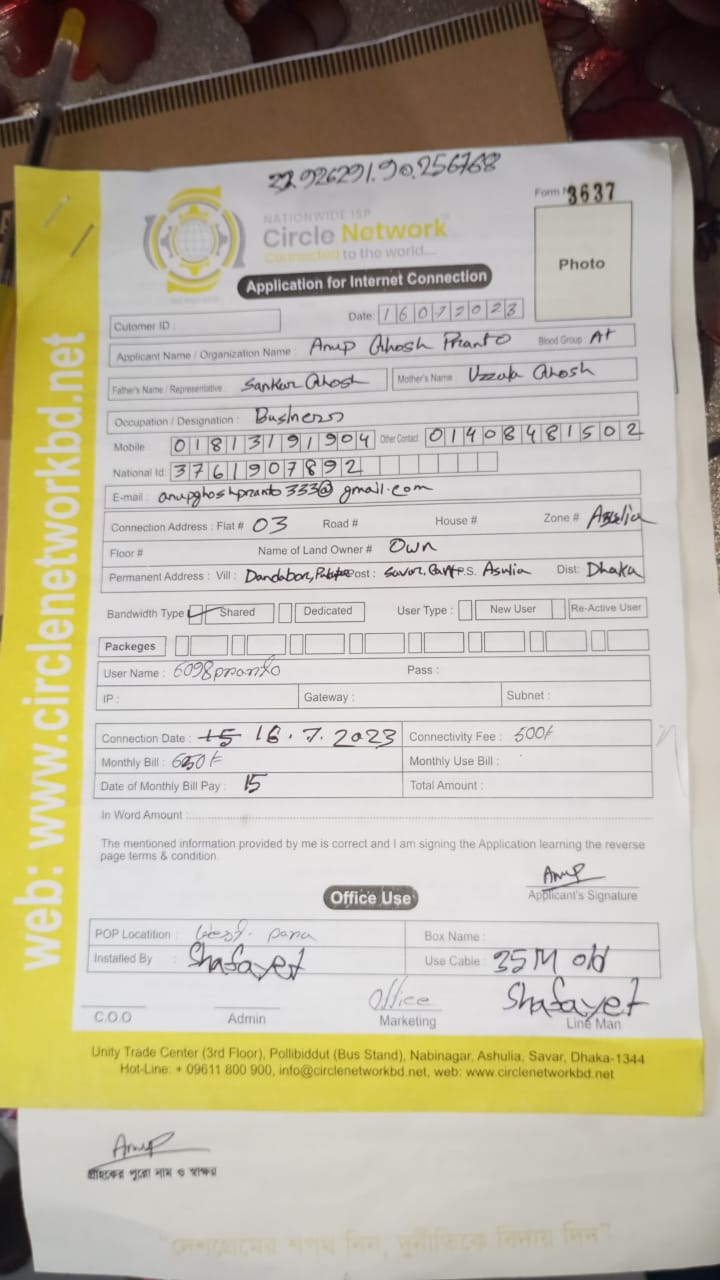 23.926291.90.256768
Form No 3637
NATIONWIDE ISP
Circle Network
Connected to the world....
Photo
Application for Internet Connection
Date: 16072023
Cutomer ID :
Applicant Name / Organization Name : Anup Ghosh Pranto Blood Group A+
Father's Name / Representative : Sankar Ghosh Mother's Name : Ghosh
Occupation / Designation : Business
Mobile : 01813191904 Other Contact : 01408481502
National Id: 3761907892
E-mail : anupghoshpranto333@gmail.com
Connection Address : Flat # 03 Road # House # Zone # Asulia
Floor # Name of Land Owner # Own
Permanent Address : Vill : Dandabor, Post : Savar, P.S. Asulia Dist: Dhaka
Bandwidth Type Shared Dedicated User Type : New User Re-Active User
Packeges
User Name : 6098pranto Pass :
IP : Gateway : Subnet :
Connection Date : 15 16.7.2023 Connectivity Fee : 500/-
Monthly Bill : Monthly Use Bill :
Date of Monthly Bill Pay : 15 Total Amount :
In Word Amount :
The mentioned information provided by me is correct and I am signing the Application learning the reverse
page terms & condition.
Anup
Applicant's Signature
Office Use
POP Locatition : West. para Box Name :
Installed By : Shafayet Use Cable : 35M old
Office Shafayet
C.O.O Admin Marketing Line Man
Unity Trade Center (3rd Floor), Pollibiddut (Bus Stand), Nabinagar, Ashulia, Savar, Dhaka-1344
Hot-Line: + 09611 800 900, info@circlenetworkbd.net, web: www.circlenetworkbd.net
web: www.circlenetworkbd.net
Anup
গ্রাহকের পুরো নাম ও স্বাক্ষর
"দেশপ্রেমের শপথ নিন, দুর্নীতিকে বিদায় দিন"